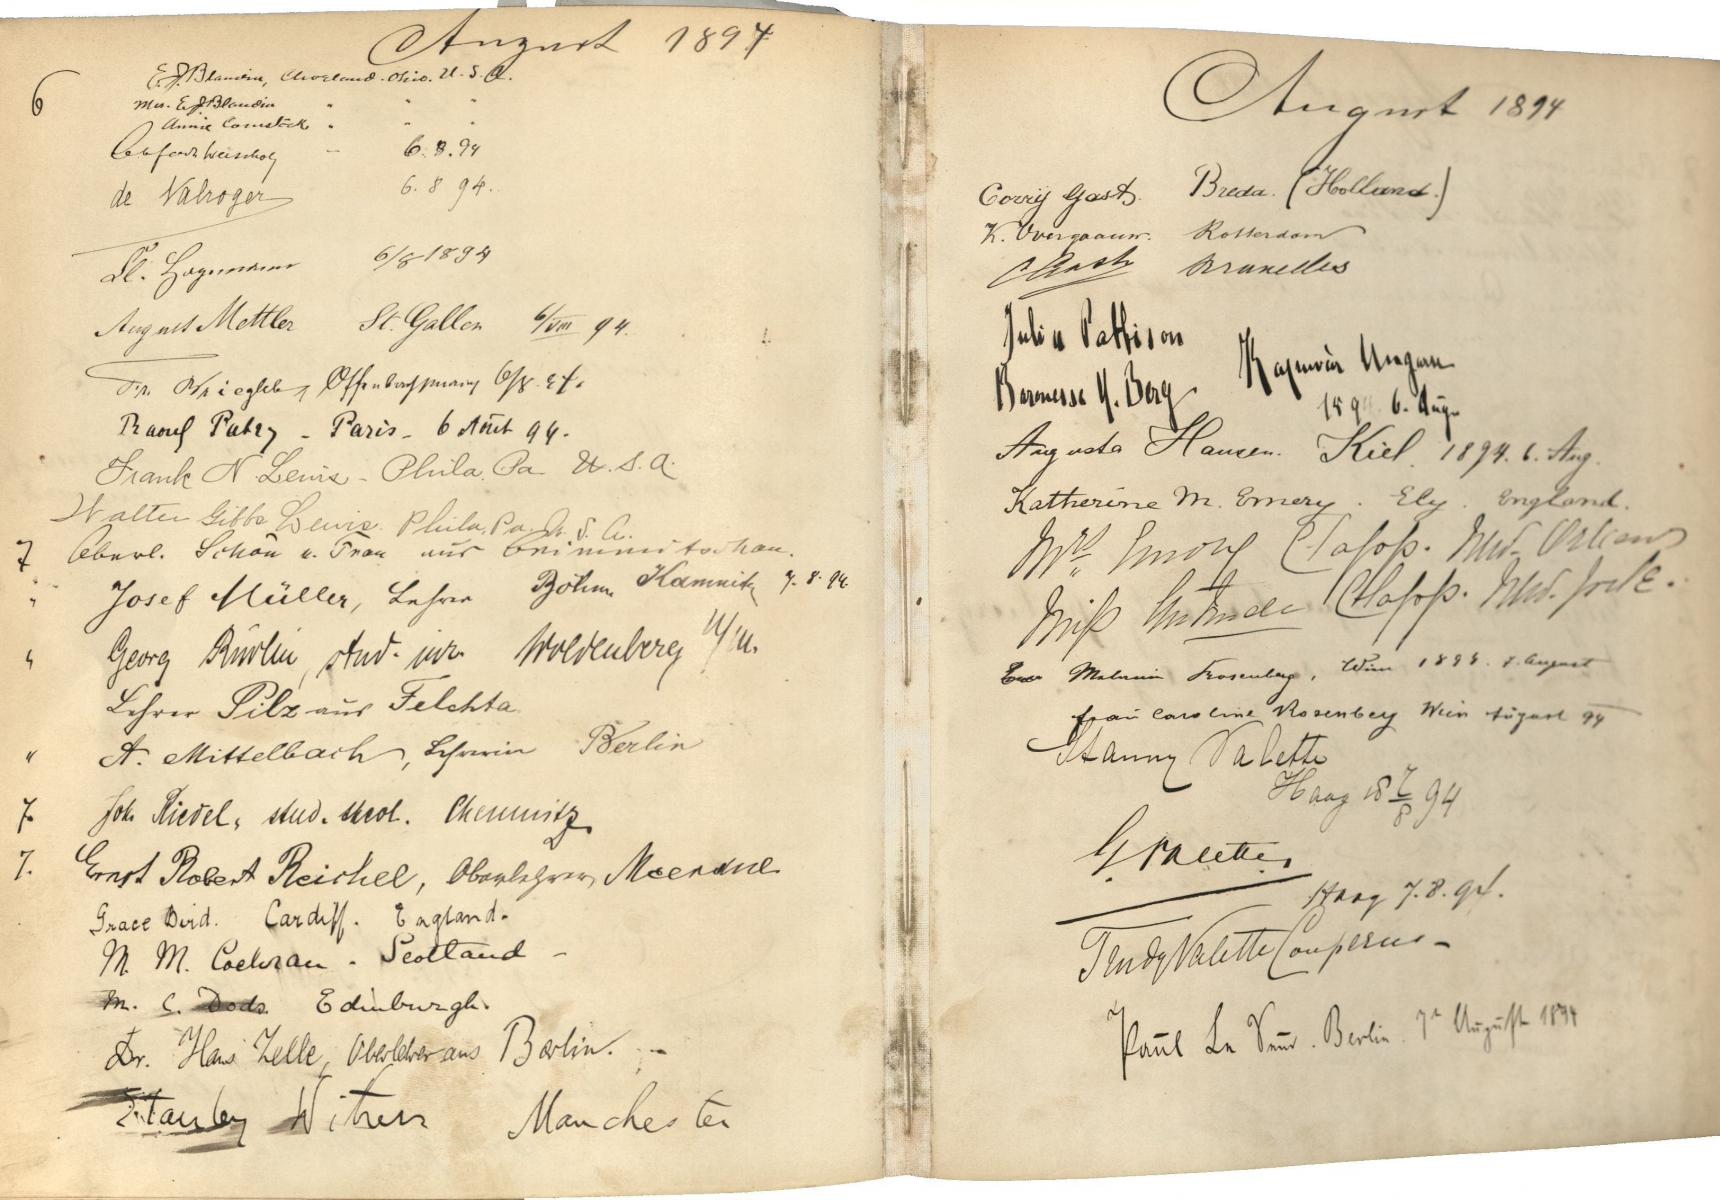 August 1894
6 E. J. Blandin, Cleveland. Ohio. U. S. A.
Mrs. E J Blandin " " "
Annie Comstock " " "
6. 8. 94
de Valroger 6. 8 94.
6/8 1894
August Mettler St. Gallen 6/VIII 94.
Fr. 6/8. 94.
Raoul Patry - Paris - 6 Août 94.
Frank N. Lewis - Phila. Pa. U. S. A.
Walter Gibbs Lewis. Phila. Pa. U. S. A.
7 Oberl. Schön u. Frau aus Crimmitschau.
" Josef Müller, Lehrer Böhm. Kamnitz 7. 8. 94
" Georg stud. jur. Woldenberg N/M.
Lehrer Pilz aus Felchta
" A. Mittelbach, Lehrerin Berlin
7. Joh. Riedel, stud. theol. Chemnitz
7. Ernst Robert Reichel, Oberlehrer, Meerane
Grace Bird. Cardiff. England.
M. M. Cochran. Scotland -
M. C. Dods. Edinburgh.
Dr. Hans Zelle, Oberlehrer aus Berlin.
Stanley Manchester
August 1894
Corry Gast. Breda. (Holland.)
K. Overgaauw. Rotterdam
C Gast Bruxelles
Julia Pattison
Baronesse M. Berg
1894 6. Aug.
Augusta Hansen. Kiel. 1894. 6. Aug.
Katherine M. Emery. Ely. England.
Mrs. New Orleans
Miss New York.
Rosenberg, Wien 1894. 7. August
Frau Caroline Rosenberg Wien August 94
Valette
Haag 18 7/8 94
G Valette.
Haag 7. 8. 94.
Trudy Valette Couperus -
Paul Le Berlin. 7t August 1894